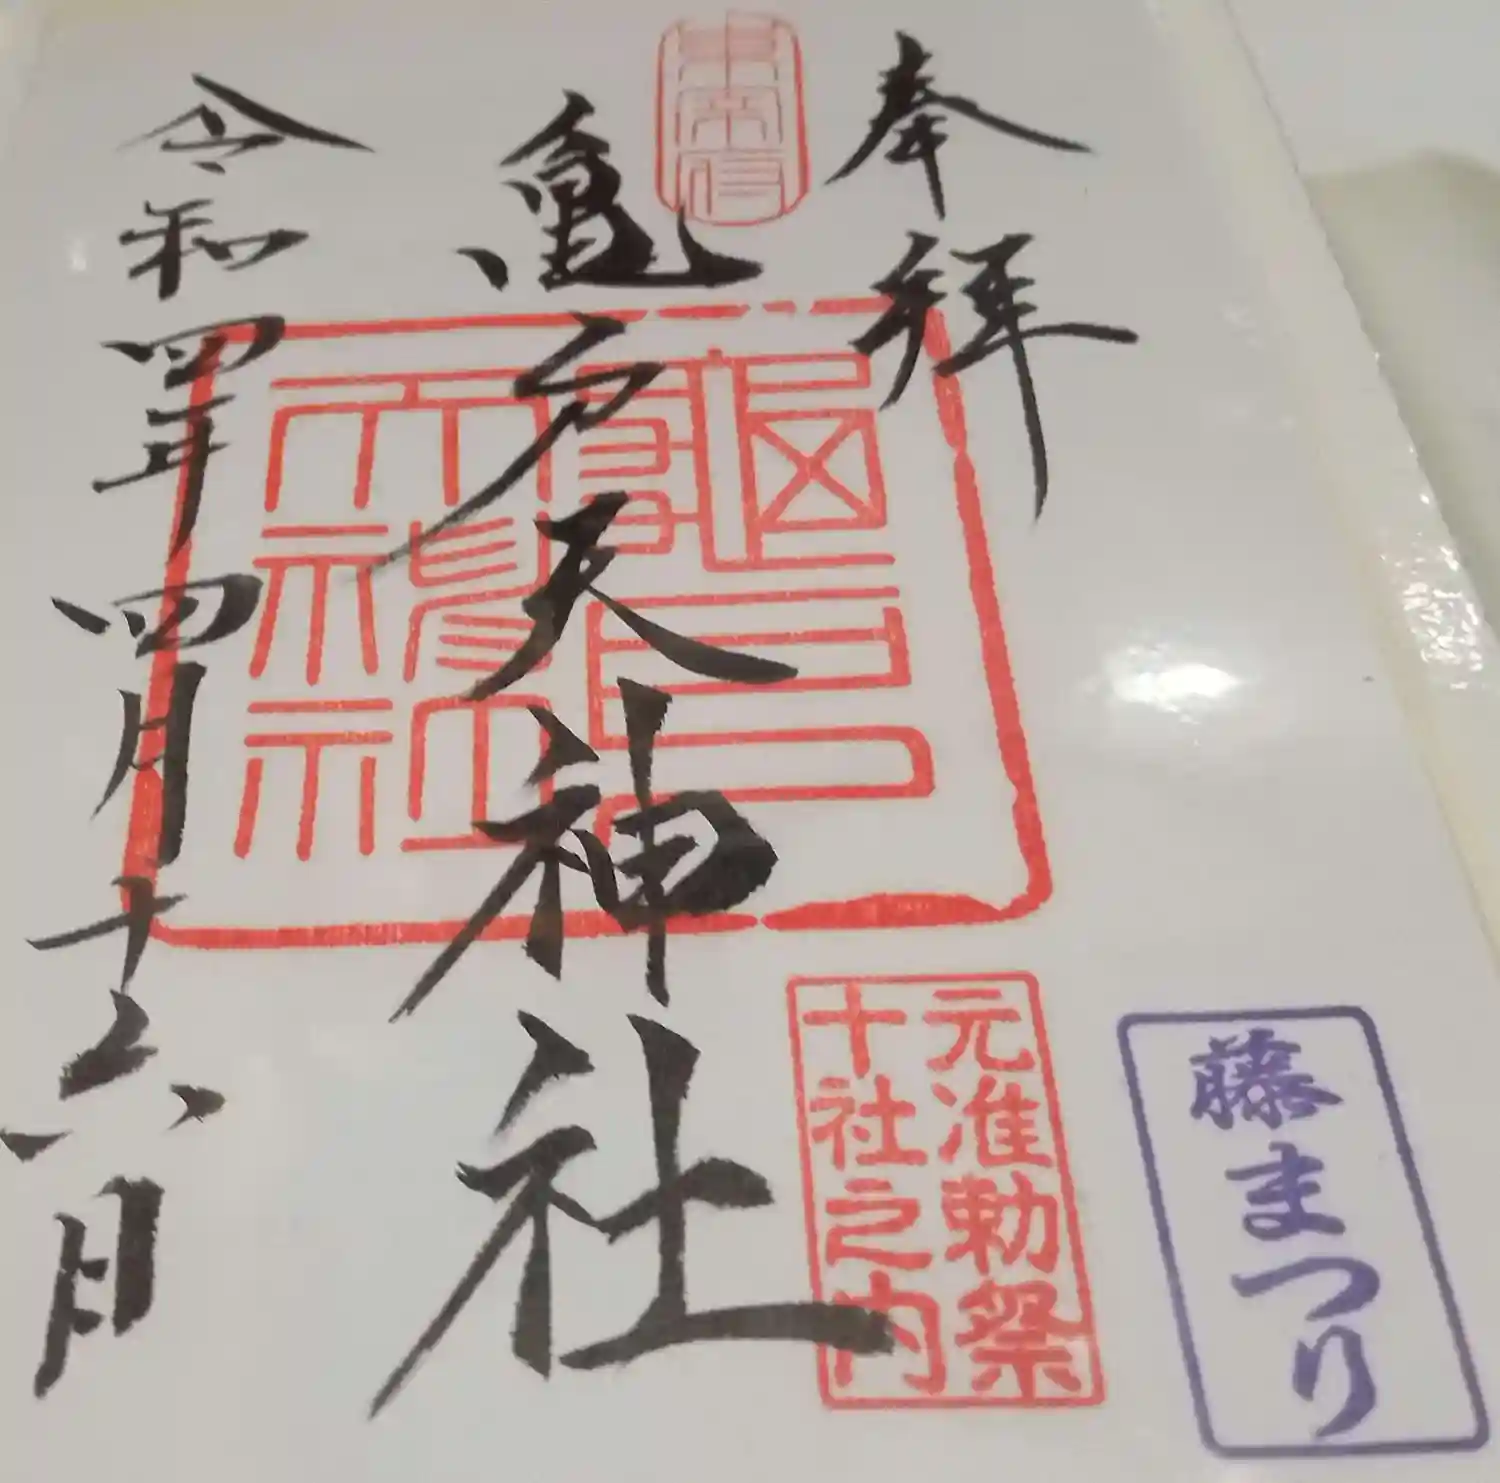 奉拝
亀戸天神社
令和四年四月十六日
元准勅祭
十社之内
藤まつり